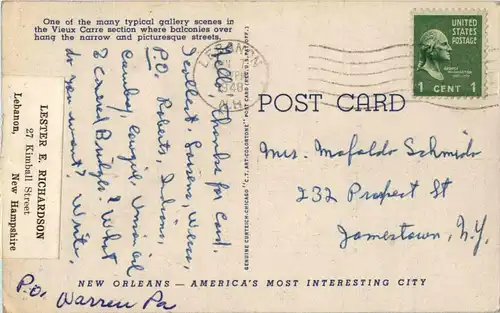 One of the many typical gallery scenes in
the Vieux Carre section where balconies over
hang the narrow and picturesque streets.
LESTER E. RICHARDSON
27 Kimball Street
Lebanon, New Hampshire
Hello, Thanks for Card.
Excellent. Lessens, Waco,
P.O. Roberts, Indiana,
Cowboy, Cowgirl, Union oil
& Covered Bridges? What
do you want? Write,
P.O. Warren Pa
LEBANON
1948
N.H.
UNITED
STATES
POSTAGE
1 CENT 1
POST CARD
GENUINE CURTEICH-CHICAGO "C.T. ART-COLORTONE" POST CARD (REG. U.S. PAT. OFF.)
Mrs. Mafaldo Schmids
232 Prospect St
Jamestown, N.Y.
NEW ORLEANS — AMERICA'S MOST INTERESTING CITY